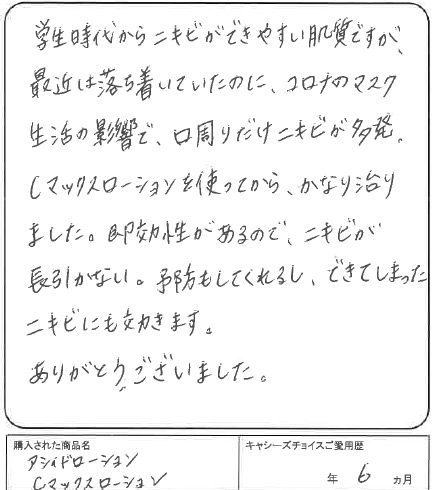 学生時代からニキビができやすい肌質ですが、
最近は落ち着いていたのに、コロナのマスク
生活の影響で、口周りだけニキビが多発。
Cマックスローションを使ってから、かなり治り
ました。即効性があるので、ニキビが
長引かない。予防もしてくれるし、できてしまった
ニキビにも効きます。
ありがとうございました。
購入された商品名
アシィドローション
Cマックスローション
キャシーズチョイスご愛用歴
年 6 ヵ月